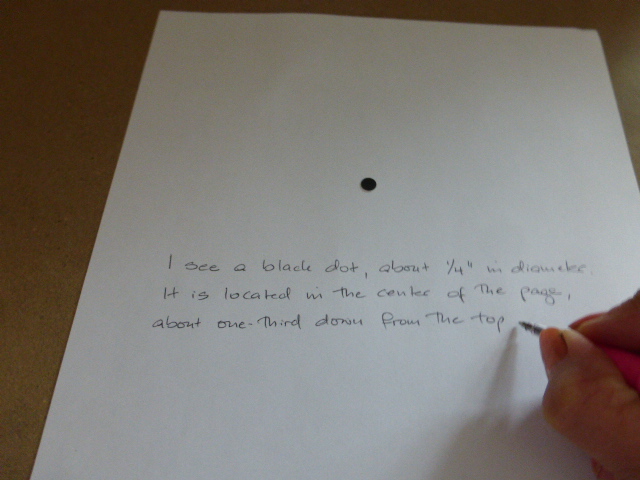 I see a black dot, about 1/4" in diameter.
It is located in the center of the page,
about one-third down from the top